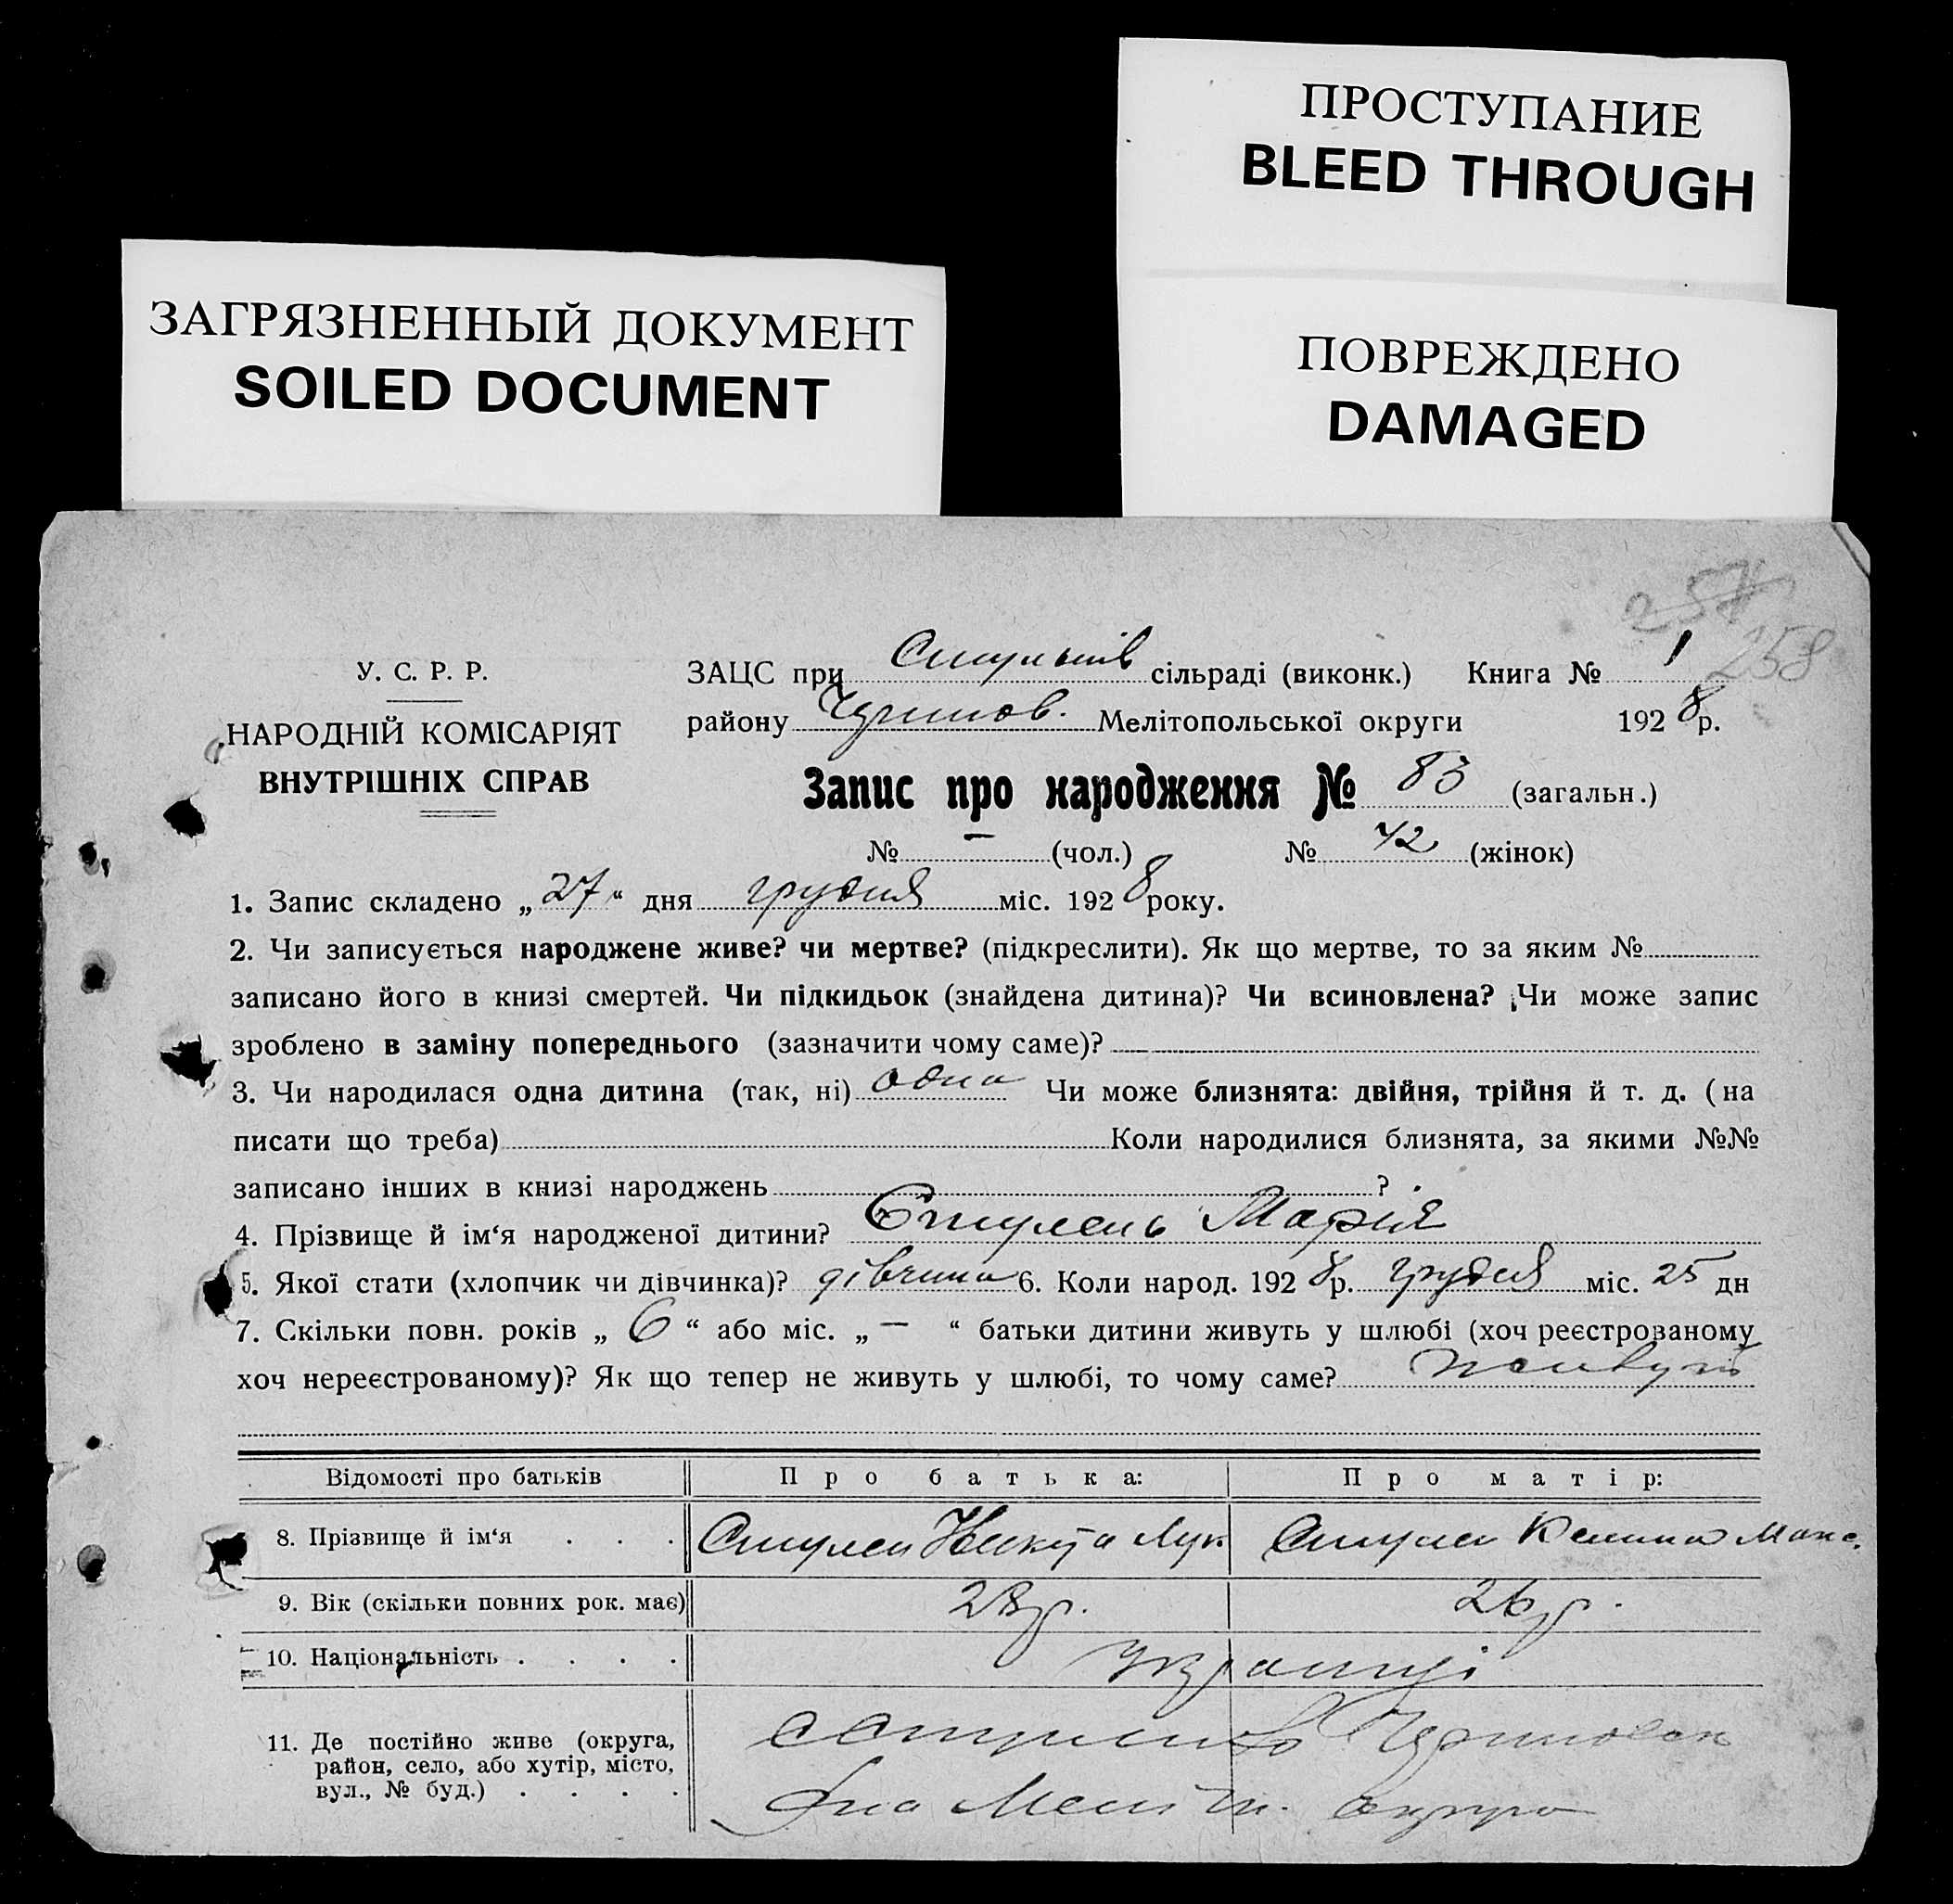 ПРОСТУПАНИЕ
BLEED THROUGH
ЗАГРЯЗНЕННЫЙ ДОКУМЕНТ
SOILED DOCUMENT
ПОВРЕЖДЕНО
DAMAGED
257
258
У. С. Р. Р.
НАРОДНІЙ КОМІСАРІЯТ
ВНУТРІШНІХ СПРАВ
ЗАЦС при сільраді (виконк.) Книга № 1
району Мелітопольської округи 1928р.
Запис про народження № 83 (загальн.)
№ — (чол.) № 42 (жінок)
1. Запис складено „27“ дня грудня міс. 1928 року.
2. Чи записується народжене живе? чи мертве? (підкреслити). Як що мертве, то за яким №
записано його в книзі смертей. Чи підкидьок (знайдена дитина)? Чи всиновлена? Чи може запис
зроблено в заміну попереднього (зазначити чому саме)?
3. Чи народилася одна дитина (так, ні) одна Чи може близнята: двійня, трійня й т. д. (на
писати що треба) Коли народилися близнята, за якими №№
записано інших в книзі народжень ?
4. Прізвище й ім‘я народженої дитини? Стулень Марія
5. Якої стати (хлопчик чи дівчинка)? дівчина 6. Коли народ. 1928р. грудня міс. 25 дн
7. Скільки повн. років „6“ або міс. „—“ батьки дитини живуть у шлюбі (хоч реєстрованому
хоч нереєстрованому)? Як що тепер не живуть у шлюбі, то чому саме? живуть
Відомості про батьків Про батька: Про матір:
8. Прізвище й ім‘я . . . Микита Лук.
9. Вік (скільки повних рок. має) 28р. 26р.
10. Національність . . . . українці
11. Де постійно живе (округа,
район, село, або хутір, місто,
вул., № буд.) . . . .
Меліт. округа